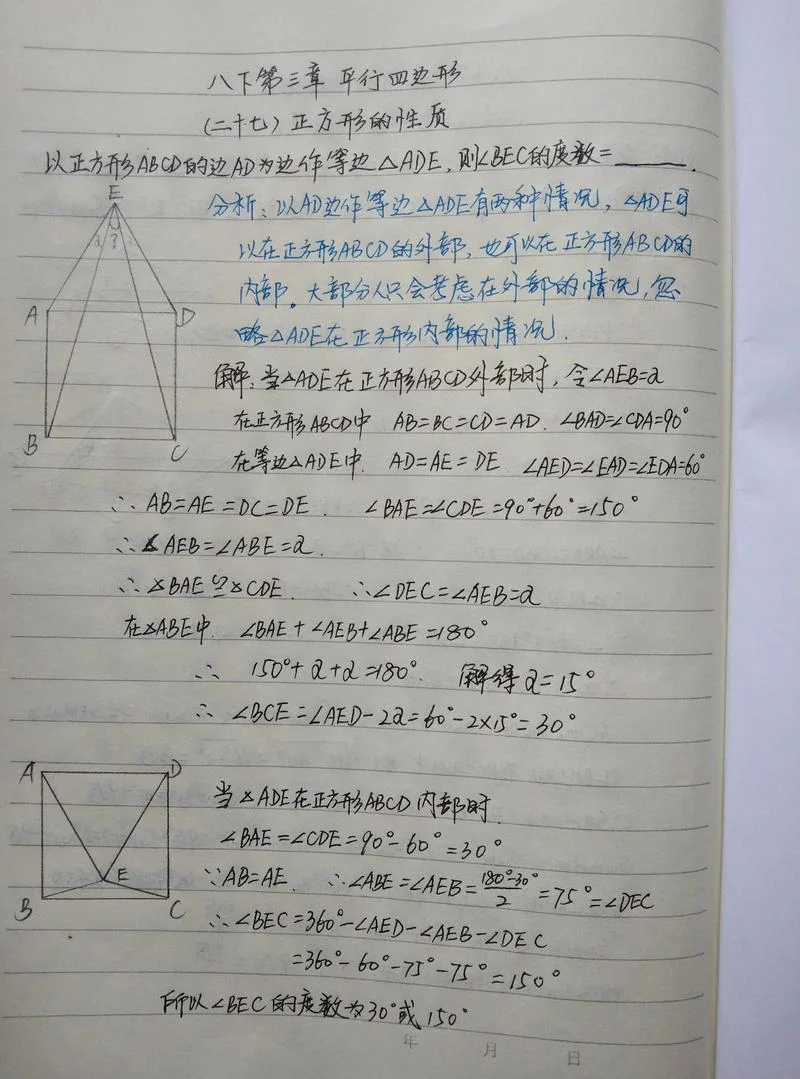 八下第三章 平行四边形
(二十七) 正方形的性质
以正方形ABCD的边AD为边作等边△ADE,则∠BEC的度数=______.
E
α ? α
A
D
B
C
分析:以AD边作等边△ADE有两种情况,△ADE可
以在正方形ABCD的外部,也可以在正方形ABCD的
内部。大部分人只会考虑在外部的情况,忽
略△ADE在正方形内部的情况.
解:当△ADE在正方形ABCD外部时,令∠AEB=α
在正方形ABCD中 AB=BC=CD=AD. ∠BAD=∠CDA=90°
在等边△ADE中. AD=AE=DE ∠AED=∠EAD=∠EDA=60°
∴ AB=AE=DC=DE. ∠BAE=∠CDE=90°+60°=150°
∴∠AEB=∠ABE=α.
∴△BAE≌△CDE. ∴∠DEC=∠AEB=α
在△ABE中. ∠BAE+∠AEB+∠ABE=180°
∴ 150°+α+α=180°. 解得α=15°
∴ ∠BCE=∠AED-2α=60°-2×15°=30°
A
D
E
B
C
当△ADE在正方形ABCD内部时.
∠BAE=∠CDE=90°-60°=30°
∵AB=AE. ∴∠ABE=∠AEB=(180°-30°)/2=75°=∠DEC
∴∠BEC=360°-∠AED-∠AEB-∠DEC
=360°-60°-75°-75°=150°
所以∠BEC的度数为30°或150°
年 月 日